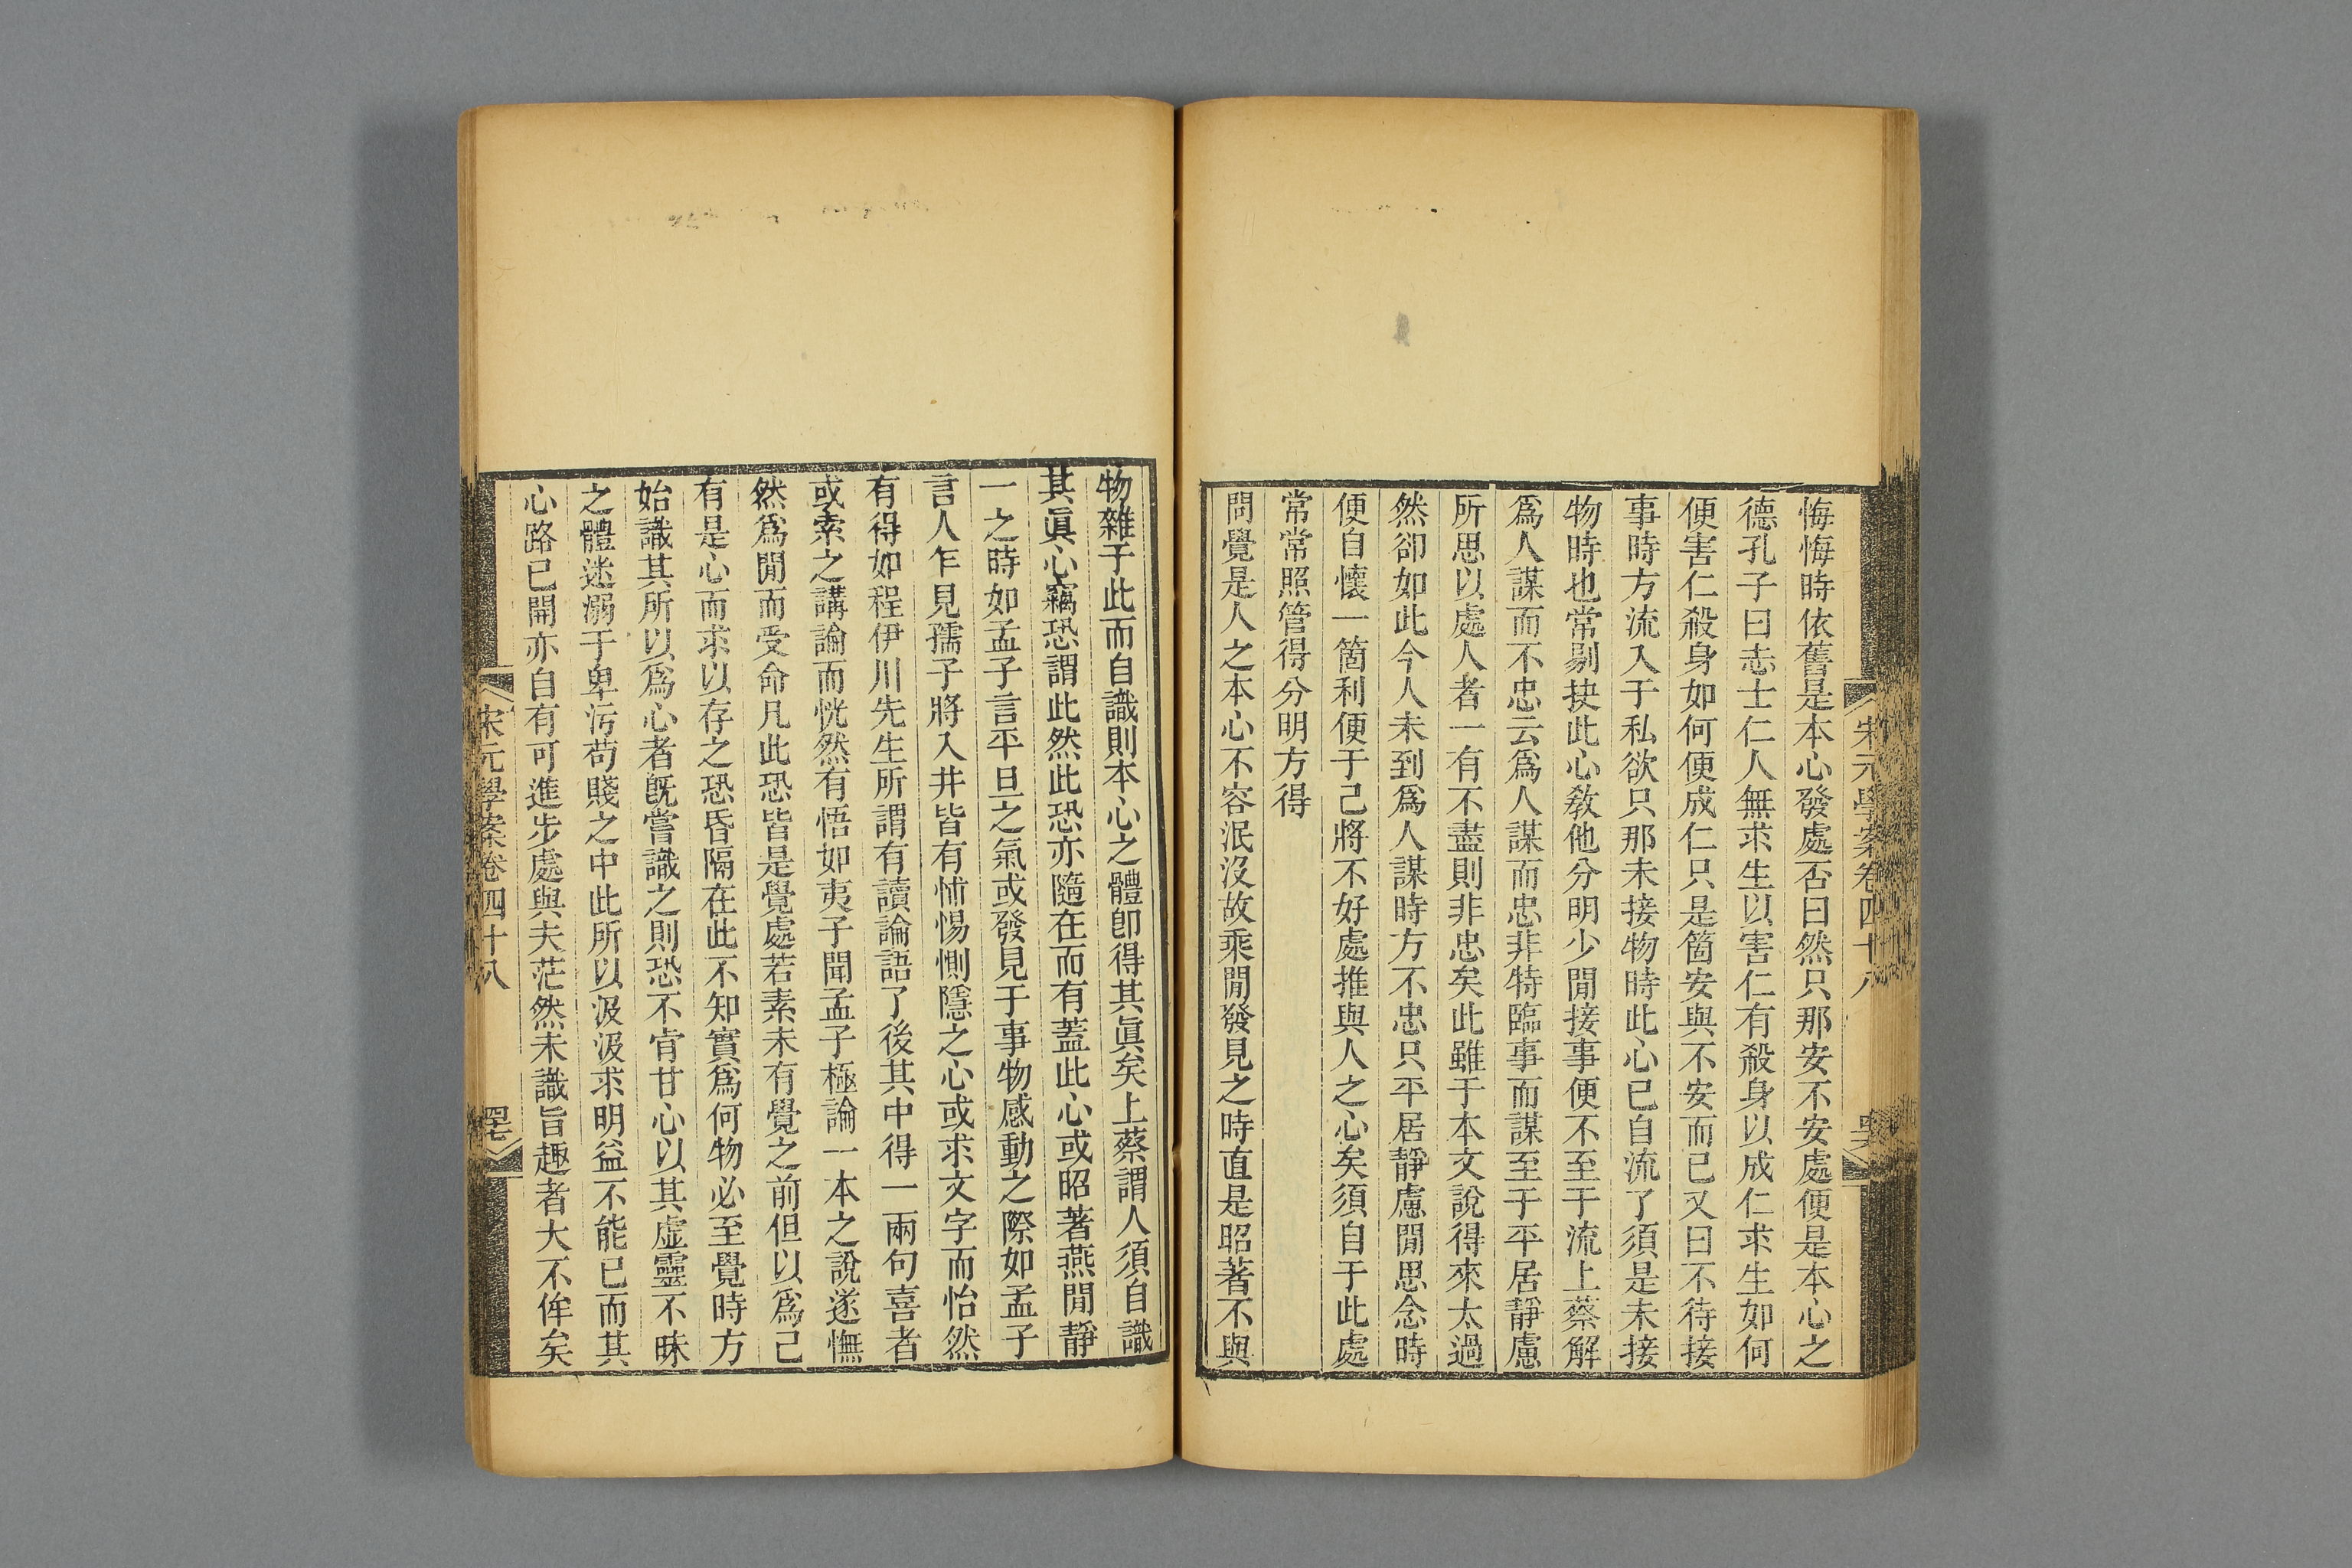 宋元學案卷四十八
悔悔時依舊是本心發處否曰然只那安不安處便是本心之
德孔子曰志士仁人無求生以害仁有殺身以成仁求生如何
便害仁殺身如何便成仁只是箇安與不安而已又曰不待接
事時方流入于私欲只那未接物時此心已自流了須是未接
物時也常剔抉此心敎他分明少閒接事便不至于流上蔡解
爲人謀而不忠云爲人謀而忠非特臨事而謀至于平居靜慮
所思以處人者一有不盡則非忠矣此雖于本文說得來太過
然卻如此今人未到爲人謀時方不忠只平居靜慮閒思念時
便自懷一箇利便于己將不好處推與人之心矣須自于此處
常常照管得分明方得
問覺是人之本心不容泯沒故乘閒發見之時直是昭著不與
物雜于此而自識則本心之體卽得其眞矣上蔡謂人須自識
其眞心竊恐謂此然此恐亦隨在而有蓋此心或昭著燕閒靜
一之時如孟子言平旦之氣或發見于事物感動之際如孟子
言人乍見孺子將入井皆有怵惕惻隱之心或求文字而怡然
有得如程伊川先生所謂有讀論語了後其中得一兩句喜者
或索之講論而恍然有悟如夷子聞孟子極論一本之說遂憮
然爲閒而受命凡此恐皆是覺處若素未有覺之前但以爲己
有是心而求以存之恐昏隔在此不知實爲何物必至覺時方
始識其所以爲心者旣嘗識之則恐不肯甘心以其虛靈不昧
之體迷溺于卑污苟賤之中此所以汲汲求明益不能已而其
心路已開亦自有可進步處與夫茫然未識旨趣者大不侔矣
宋元學案卷四十八